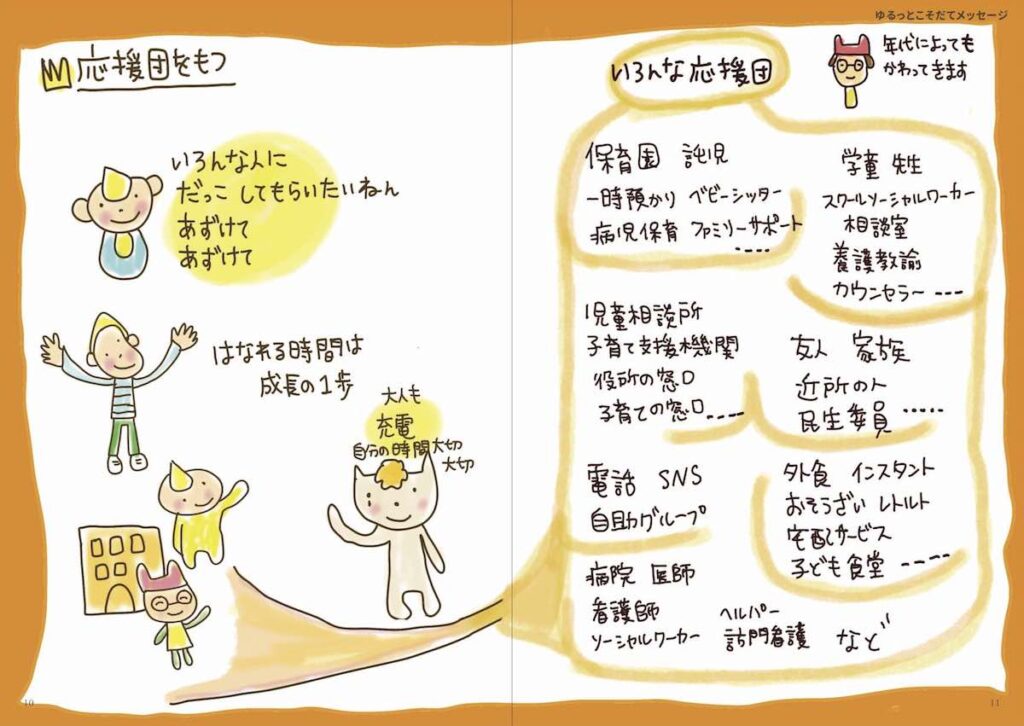 ゆるっとこそだてメッセージ
応援団をもつ
いろんな人に
だっこ してもらいたいねん
あずけて
あずけて
はなれる時間は
成長の1歩
大人も
充電
自分の時間大切
大切
10
いろんな応援団
年代によっても
かわってきます
保育園 託児
一時預かり ベビーシッター
病児保育 ファミリーサポート
....
学童 先生
スクールソーシャルワーカー
相談室
養護教諭
カウンセラー ----
児童相談所
子育て支援機関
役所の窓口
子育ての窓口.....
友人 家族
近所の人
民生委員.....
電話 SNS
自助グループ
外食 インスタント
おそうざい レトルト
宅配サービス
子ども食堂 ----
病院 医師
看護師
ソーシャルワーカー
ヘルパー
訪問看護 など
11